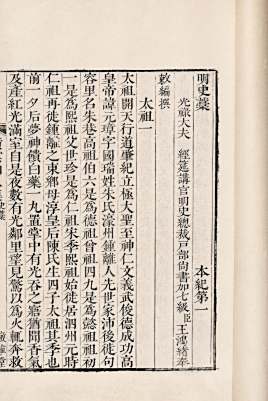 明史藁
本紀第一
光祿大夫　經筵講官明史總裁戶部尚書加七級臣王鴻緒奉
敕編撰
太祖一
太祖開天行道肇紀立極大聖至神仁文義武俊德成功高
皇帝諱元璋字國瑞姓朱氏鍾離人先世家沛後徙句
容里名朱巷高祖伯六是為德祖曾祖四九是為懿祖祖初
一是為熙祖父世珍是為仁祖宋季熙祖始徙居泗州元時
仁祖再徙鍾離之東鄉母淳皇后陳氏生四子太祖其季也
前一夕后夢神饋白藥一丸置掌中有光吞之寤猶聞香氣
及產紅光滿室自是夜數有光鄰里望見驚以為火輒奔救